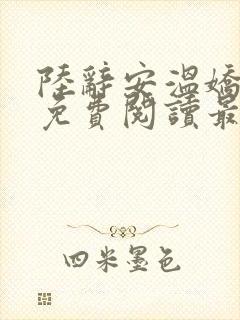 陸辭安溫嬌
免費閱讀最
四米墨色